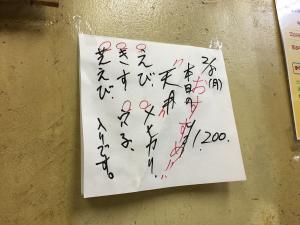 2/8(月)
本日のおすすめ
"天丼" 1,200.
えび、メヒカリ、
きす、穴子、
芝えび 入りです。